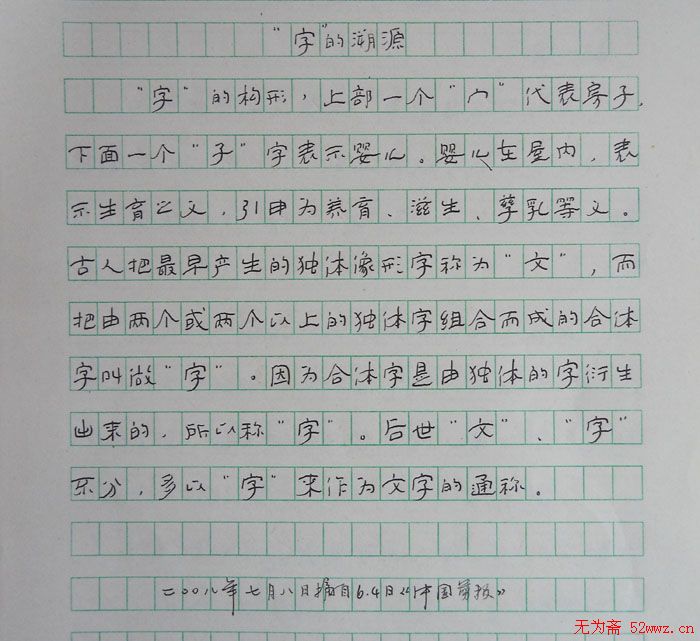 “字”的溯源
“字”的构形，上部一个“宀”代表房子，
下面一个“子”字表示婴儿。婴儿在屋内，表
示生育之义，引申为养育、滋生、孳乳等义。
古人把最早产生的独体像形字称为“文”，而
把由两个或两个以上的独体字组合而成的合体
字叫做“字”。因为合体字是由独体的字衍生
出来的，所以称“字”。后世“文”、“字”
不分，多以“字”来作为文字的通称。
二〇〇八年七月八日摘自6.4日《中国剪报》
无为斋 52wwz.cn